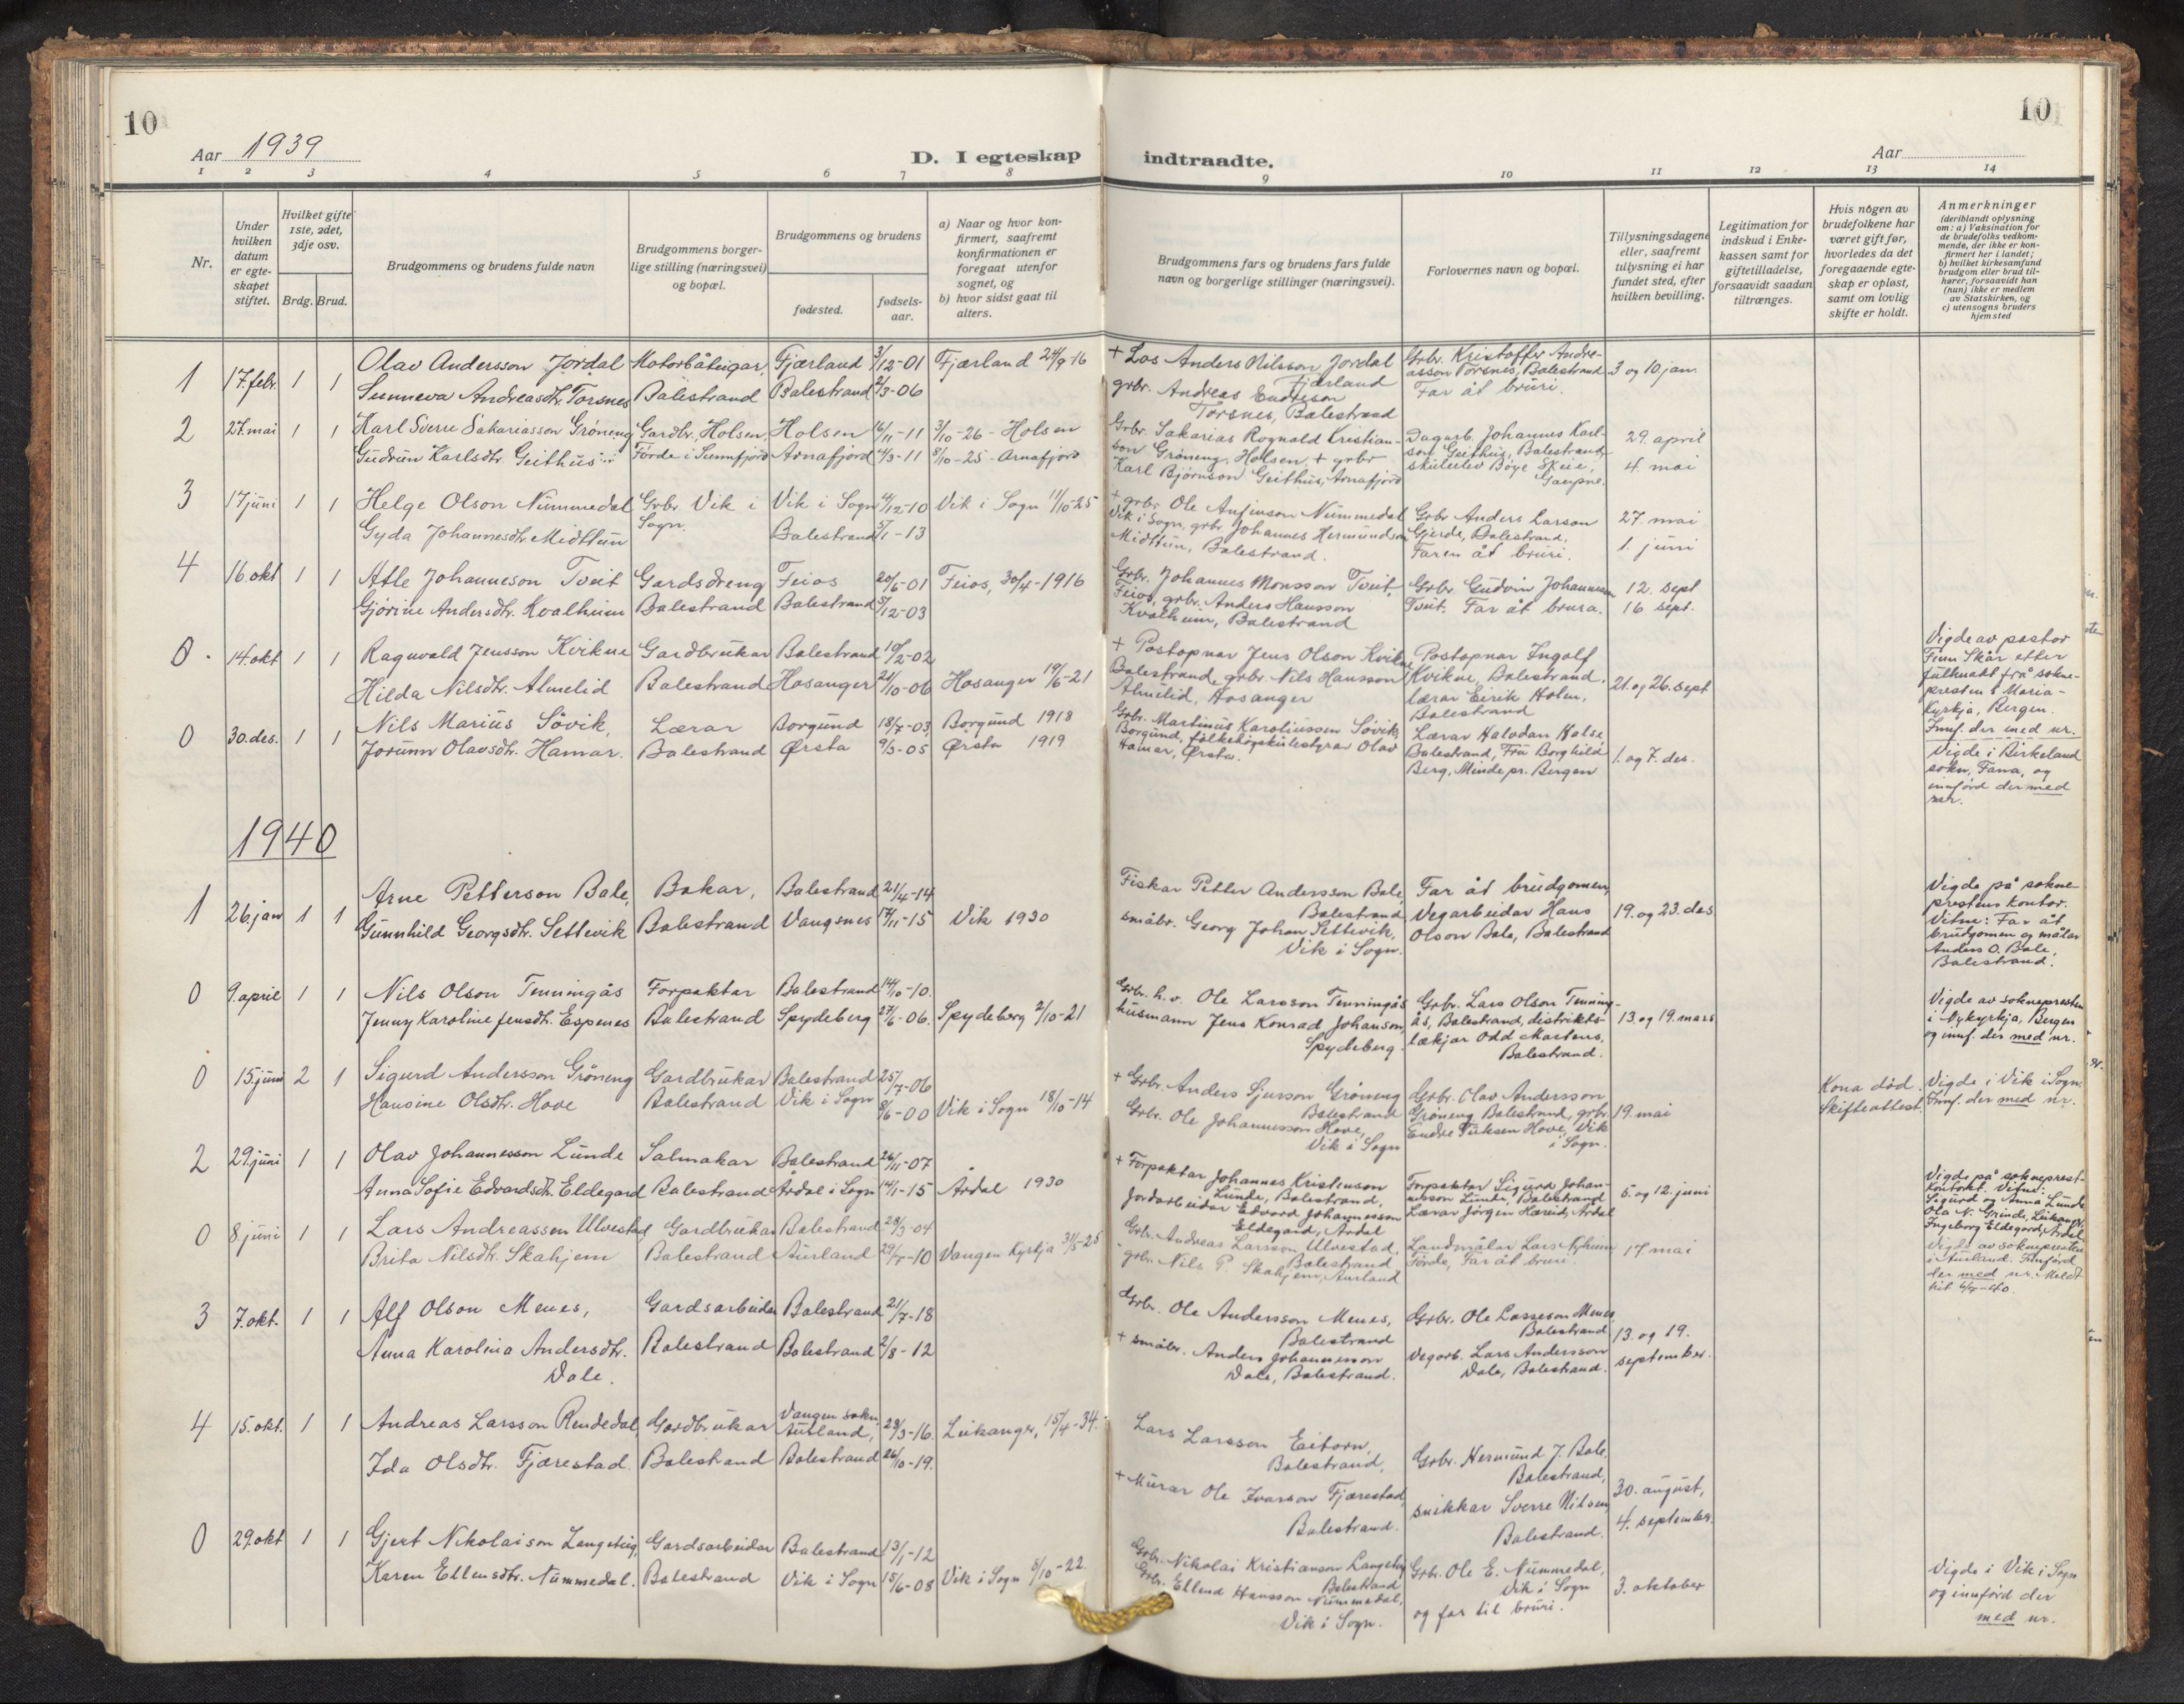 10
10
Aar 1939
D. I egteskap indtraadte.
Aar
1 2 3 4 5 6 7 8 9 10 11 12 13 14
Nr.
Under hvilken datum er egteskapet stiftet.
Hvilket gifte 1ste, 2det, 3dje osv.
Brdg. Brud.
Brudgommens og brudens fulde navn
Brudgommens borgerlige stilling (næringsvei) og bopæl.
Brudgommens og brudens
fødested.
fødselsaar.
a) Naar og hvor konfirmert, saafremt konfirmationen er foregaat utenfor sognet, og
b) hvor sidst gaat til alters.
Brudgommens fars og brudens fars fulde navn og borgerlige stillinger (næringsvei).
Forlovernes navn og bopæl.
Tillysningsdagene eller, saafremt tillysning ei har fundet sted, efter hvilken bevilling.
Legitimation for indskud i Enkekassen samt for giftetilladelse, forsaavidt saadan tiltrænges.
Hvis nogen av brudefolkene har været gift før, hvorledes da det foregaaende egteskap er opløst, samt om lovlig skifte er holdt.
Anmerkninger
(deriblandt oplysning om: a) Vaksination for de brudefolks vedkommende, der ikke er konfirmert her i landet;
b) hvilket kirkesamfund brudgom eller brud tilhører, forsaavidt han (hun) ikke er medlem av Statskirken, og
c) utensogns bruders hjemsted
1 17. febr. 1 1 Olav Andersson Jordal Motorbåteigar, Fjærland 3/12-01 Fjærland 24/9-16
Sunneva Andreasdtr. Torsnes Balestrand Balestrand 2/3-06
+ Los Anders Nilsson Jordal Fjærland
grbr. Andreas Endreson Torsnes, Balestrand
Grbr. Kristoffer Andreasson Torsnes, Balestrand
Far åt bruri.
3 og 10. jan.
2 27. mai 1 1 Karl Sverre Sakariasson Grøneng Gardbr., Holsen, Holsen 16/11-11 3/10-26 - Holsen
Gudrun Karlsdtr. Geithus Førde i Sunnfjord Arnafjord 4/3-11 8/10-25 - Arnafjord
Grbr. Sakarias Rognald Kristianson Grøneng, Holsen, + grbr
Karl Bjørnson Geithus, Arnafjord
Dagarb. Johannes Karlson Geithus, Balestrand
skuleelev Bøye Skeie, Gaupne.
29. april
4. mai
3 17 juni 1 1 Helge Olson Nummedal Grbr. Vik i Sogn. Vik i Sogn 4/12-10 Vik i Sogn 11/10-25
Gyda Johannesdtr. Midttun Balestrand 5/1-13
+ grbr. Ole Anfinson Nummedal
Vik i Sogn, grbr. Johannes Hermundson
Midttun, Balestrand.
Grbr Anders Larson
Gjerde, Balestrand.
Faren åt bruri.
27. mai
1. juni
4 16. okt 1 1 Atle Johanneson Tveit Gardsdreng Feios 20/6-01 Feios, 30/4-1916
Gjørine Andersdtr. Kvalheim Balestrand Balestrand 5/12-03
Grbr. Johannes Monsson Tveit,
Feios, grbr. Anders Hansson
Kvalheim, Balestrand
Grbr. Gudvin Johannesen
Tveit. Far åt brura.
12. sept
16 sept.
0 14. okt 1 1 Ragnvald Jensson Kvikne Gardbrukar Balestrand 10/2-02
Hilda Nilsdtr. Almelid Balestrand Hosanger 21/10-06 Hosanger 19/6-21
+ Postopnar Jens Olson Kvikne
Balestrand, grbr. Nils Hansson
Almelid, Hosanger
Postopnar Ingolf
Kvikne, Balestrand.
lærar Eirik Holen,
Balestrand
21. og 26. sept
Vigde av pastor
Finn Skår etter
fullmakt frå sokne-
presten i Maria-
kyrkja, Bergen.
Innf. der med nr.
0 30. des. 1 1 Nils Marius Søvik, Lærar Borgund 18/7-03 Borgund 1918
Jorunn Olavsdtr. Hamar. Balestrand Ørsta 9/3-05 Ørsta 1919
Grbr. Martinus Karoliussen Søvik,
Borgund, folkehøgskulestyrar Olav
Hamar, Ørsta.
Lærar Halvdan Holse
Balestrand, Fru Borghild
Berg, Minde pr. Bergen
1. og 7. des.
Vigde i Birkeland
sokn, Fana, og
innførd der med
nr.
1940
1 26. jan 1 1 Arne Petterson Bale, Bakar, Balestrand 21/4-14
Gunnhild Georgsdtr. Settevik Balestrand Vangsnes 17/11-15 Vik 1930
Fiskar Petter Andersson Bale,
Balestrand
småbr. Georg Johan Settevik,
Vik i Sogn.
Far åt brudgomen,
Vegarbeidar Hans
Olson Bale, Balestrand
19. og 23. des
Vigde på sokne-
prestens kontor.
Vitne: Far åt
brudgomen og målar
Anders O. Bale,
Balestrand.
0 9. april 1 1 Nils Olson Tenningås Forpaktar Balestrand 14/10-10.
Jenny Karoline Jensdtr. Espenes Balestrand Spydeberg 27/6-06. Spydeberg 2/10-21
Grbr. h. v. Ole Larsson Tenningås
husmann Jens Konrad Johanson,
Spydeberg.
Grbr. Lars Olson Tenning-
ås, Balestrand, distrikts-
lækjar Odd Martens,
Balestrand.
13. og 19. mars
Vigde av soknepresten
i Nykyrkja, Bergen
og innf. der med nr.
0 15. juni 2 1 Sigurd Andersson Grøneng Gardbrukar Balestrand 25/7-06
Hansine Olsdtr. Hove Balestrand Vik i Sogn 8/6-00 Vik i Sogn 18/10-14
+ Grbr. Anders Sjurson Grøneng
Balestrand
Grbr. Ole Johannesson Hove,
Vik i Sogn
Grbr. Olav Andersson
Grøneng Balestrand, grbr.
Endre Hove, Vik
i Sogn.
19. mai
Kona død.
Skifteattest.
Vigde i Vik i Sogn.
Innf. der med nr.
2 29. juni 1 1 Olav Johannesson Lunde Salmakar Balestrand 26/11-07
Anna Sofie Edvardsdtr. Eldegard Balestrand Årdal i Sogn 14/1-15 Årdal 1930
+ Forpaktar Johannes Kristenson
Lunde, Balestrand,
Jordarbeidar Edvard Johannesson
Eldegard, Årdal
Forpaktar Sigurd Johan-
nesson Lunde, Balestrand
Lærar Jørgen Hæreid, Årdal
5. og 12. juni
Vigde på sokneprest-
kontoret. Vitne:
Sigurd og Anna Lunde
Ola N. Grinde, Leikanger,
Ingeborg Eldegard, Årdal
0 8. juni 1 1 Lars Andreassen Ulvestad Gardbrukar Balestrand 28/3-04
Brita Nilsdtr. Skahjem Balestrand Aurland 29/7-10 Vangen Kyrkja 31/5-25
Grbr. Andreas Larsson Ulvestad,
Balestrand
grbr. Nils P. Skahjem, Aurland
Landmålar Lars Nyheim
Førde, Far åt bruri.
17. mai
Vigde av soknepresten
i Aurland. Innførd
der med nr. Meldt
hit
3 7. okt. 1 1 Alf Olson Menes, Gardsarbeidar Balestrand 21/7-18
Anna Karolina Andersdtr. Balestrand Balestrand 2/8-12
Dale.
Grbr. Ole Andersson Menes,
Balestrand
+ småbr. Anders Johannesson
Dale, Balestrand.
Grbr. Ole Lasseson Menes,
Balestrand
Vegarb. Lars Andersson
Dale, Balestrand.
13. og 19.
september.
4 15. okt. 1 1 Andreas Larsson Rendedal, Gardbrukar Vangen sokn, Aurland, 28/3-16. Leikanger, 15/4-34.
Ida Olsdtr. Fjærestad. Balestrand Balestrand 26/10-19.
Lars Larsson Eitorn,
Balestrand,
+ Murar Ole Ivarson Fjærestad,
Balestrand.
Grbr. Hermund J. Bale,
Balestrand,
snikkar Sverre Nilsen,
Balestrand.
30. august,
4. september.
0 29. okt 1 1 Gjert Nikolaison Langeteig, Gardsarbeidar Balestrand 13/1-12
Karen Ellensdtr. Nummedal. Balestrand Vik i Sogn 15/6-08 Vik i Sogn 8/10-22.
Grbr. Nikolai Kristianson Langeteig
Balestrand
Grbr. Ellend Hansson Nummedal,
Vik i Sogn.
Grbr. Ole E. Nummedal,
Vik i Sogn
og far til bruri.
3. oktober
Vigde i Vik i Sogn
og innførd der
med nr.